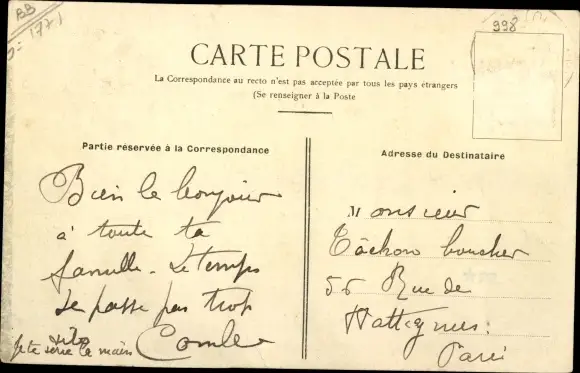 BB
1771
998
CARTE POSTALE
La Correspondance au recto n'est pas acceptée par tous les pays étrangers
(Se renseigner à la Poste
Partie réservée à la Correspondance
Bien le bonjour
à toute ta
famille - Le temps
se passe pas trop
vite
Je te serre la main
Adresse du Destinataire
Monsieur
boucher
56 Rue de
Paris